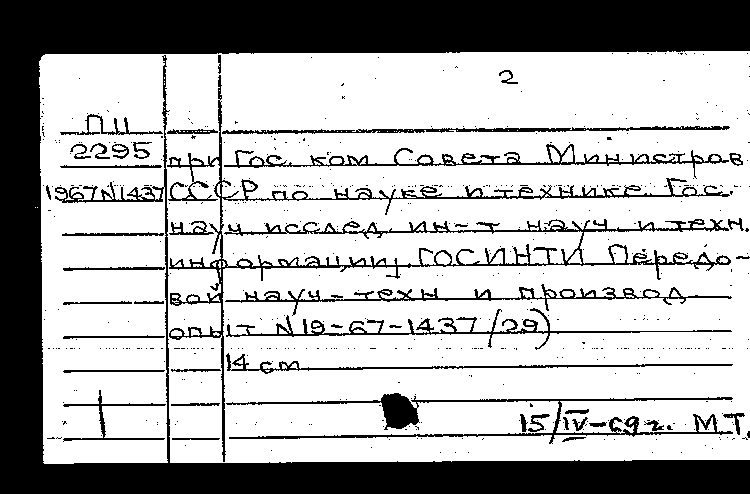 2
П 11
2295 при Гос. ком Совета Министров
1967 N1437 СССР по науке и технике. Гос.
науч исслед. ин-т науч. и техн.
информации, ГОСИНТИ Передо-
вой науч-техн и производ
опыт N 19-67-1437/29)
14 см
15/IV-69 г. М.Т.